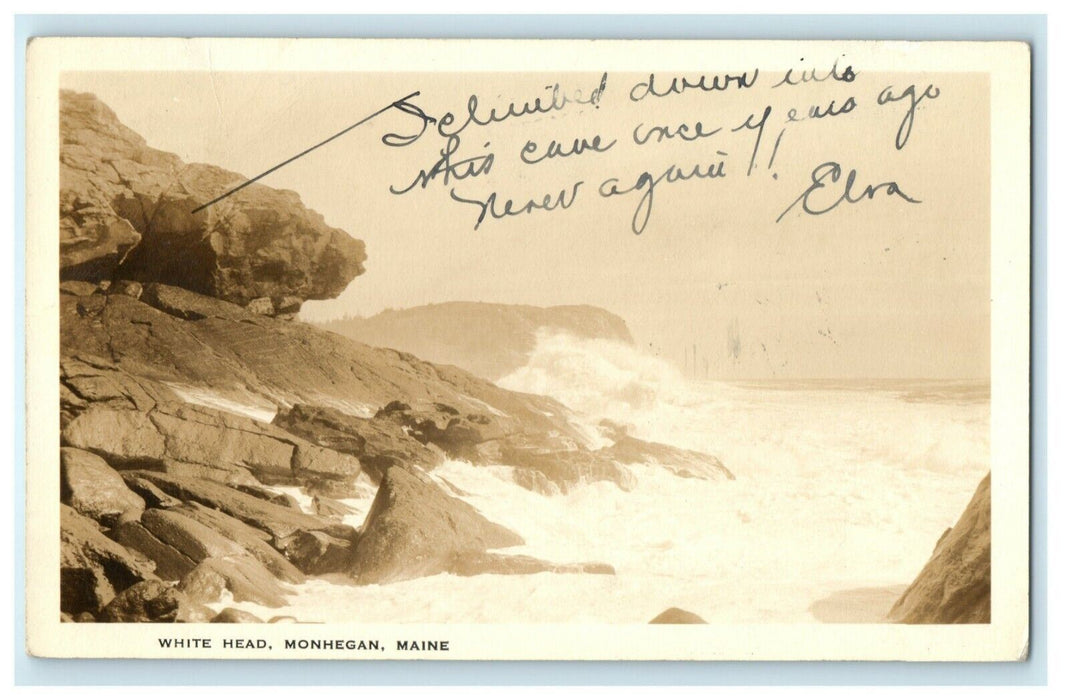 I climbed down into
this cave once years ago
never again!!
Elva
WHITE HEAD, MONHEGAN, MAINE